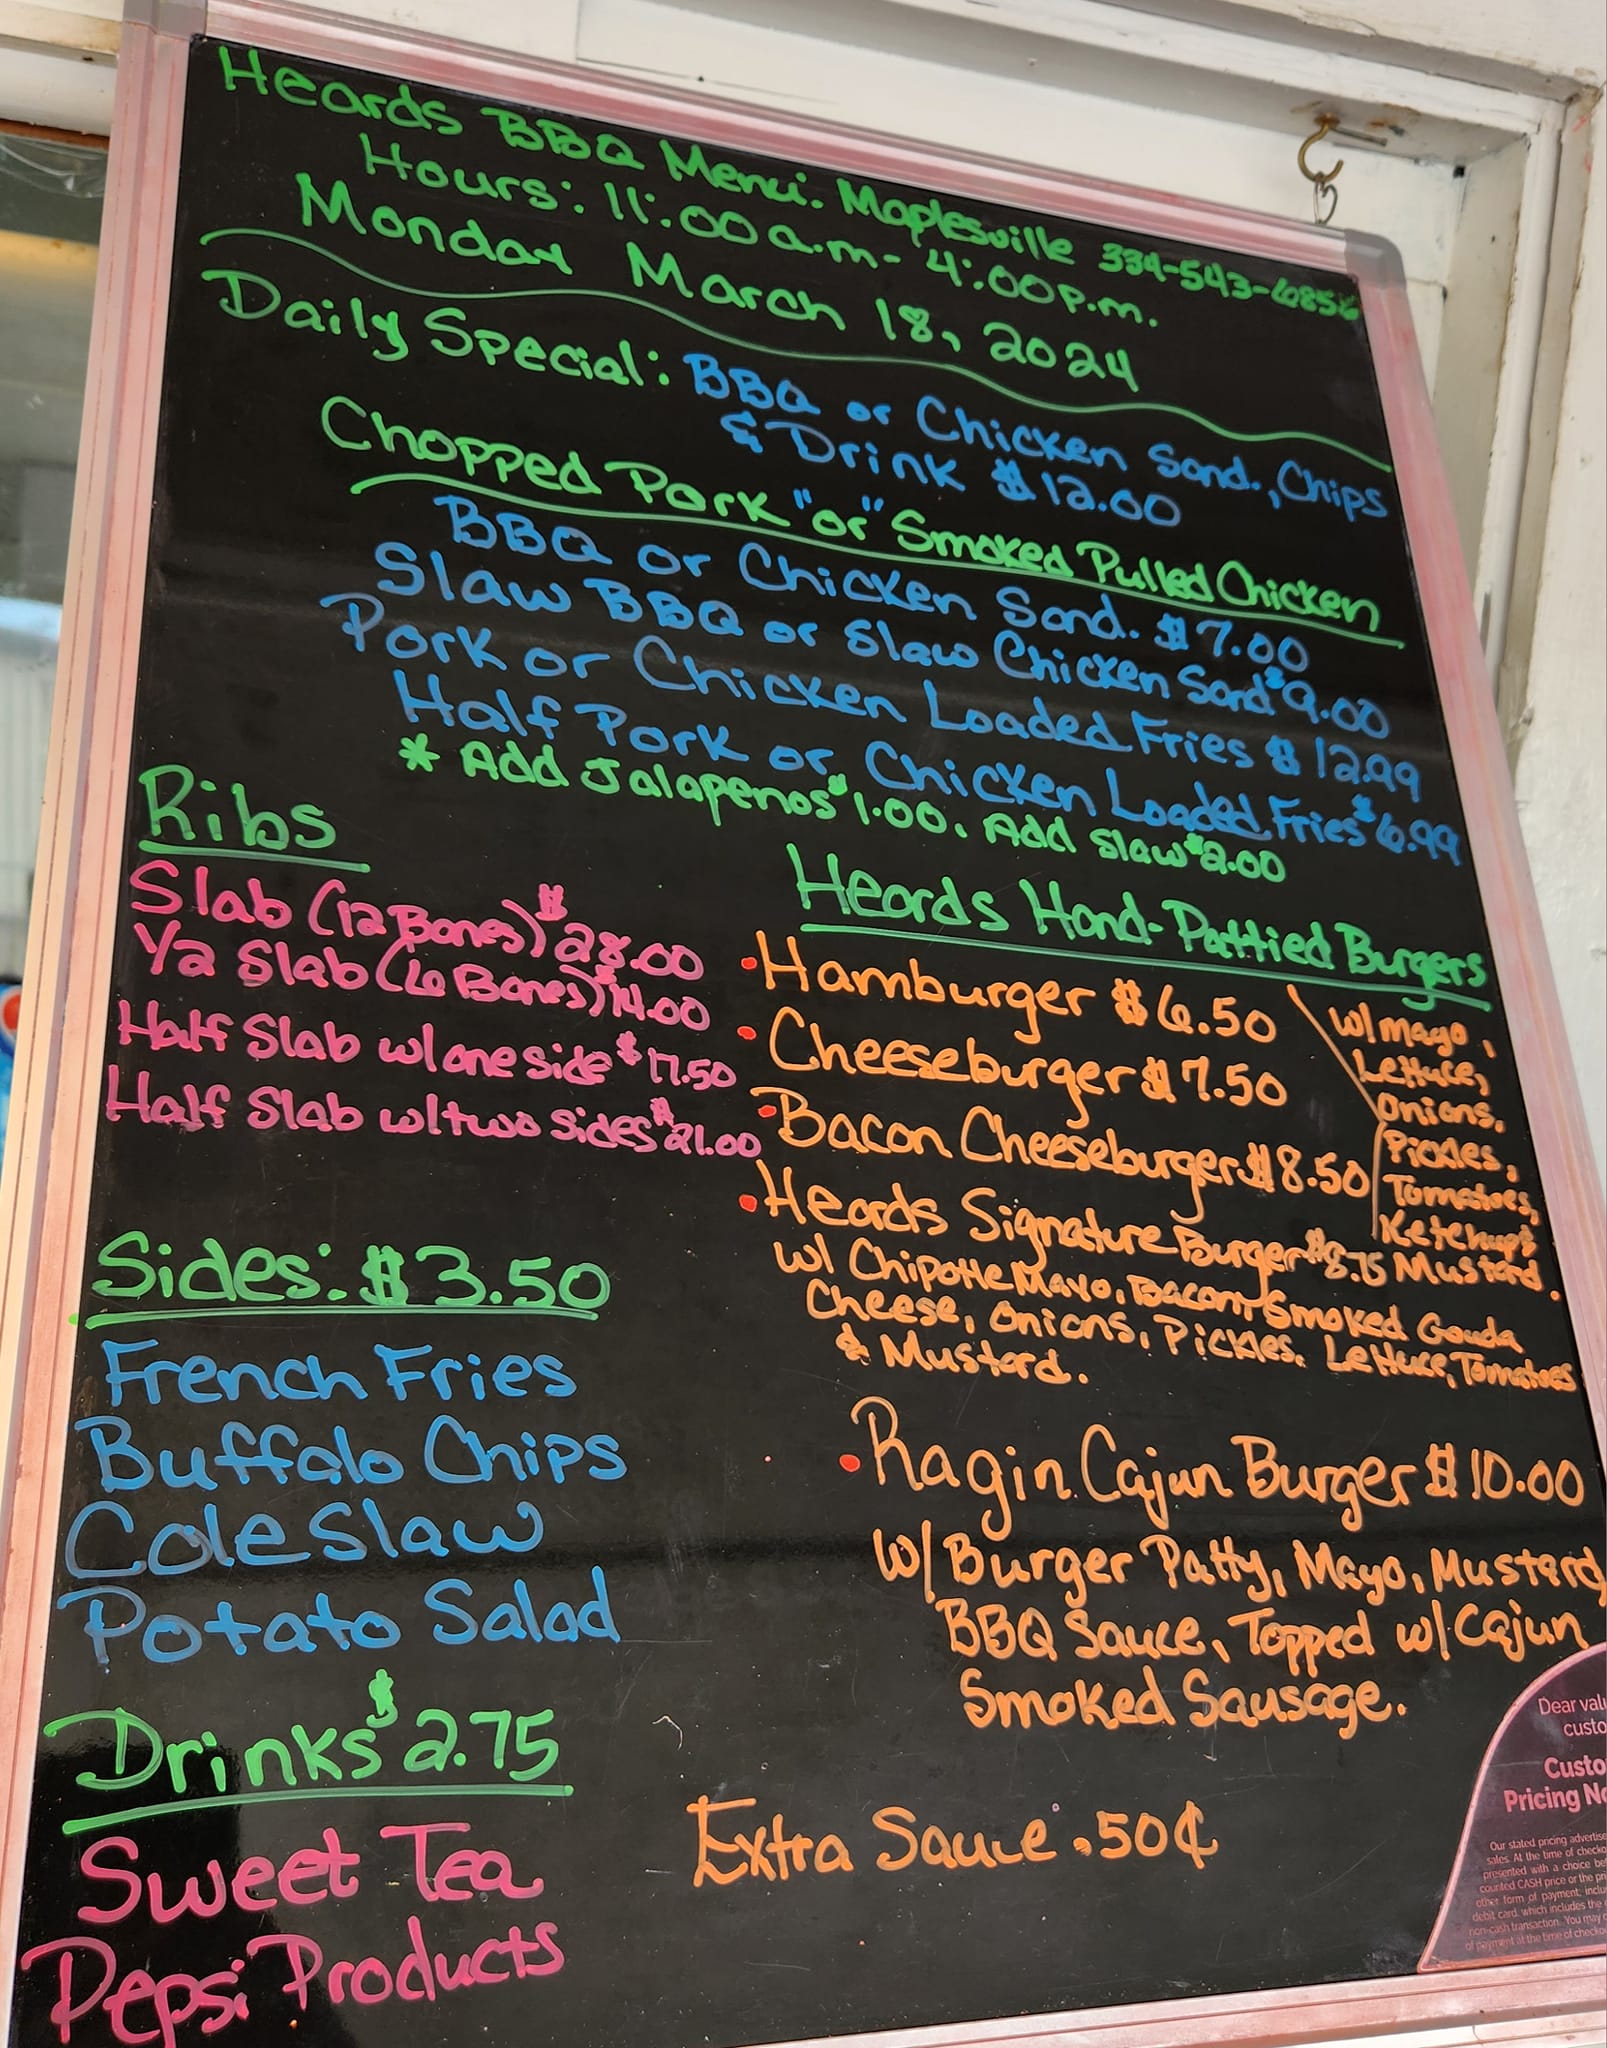 Heards BBQ Menu. Maplesville 334-543-6856
Hours: 11:00 a.m- 4:00p.m.
Monday March 18, 2024
Daily Special: BBQ or Chicken Sand., Chips
& Drink $12.00
Chopped Pork "or" Smoked Pulled Chicken
BBQ or Chicken Sand. $7.00
Slaw BBQ or Slaw Chicken Sand $9.00
Pork or Chicken Loaded Fries $12.99
Half Pork or Chicken Loaded Fries $6.99
* Add Jalapenos $1.00. Add slaw $2.00
Ribs
Slab (12 Bones) $28.00
1/2 Slab (6 Bones) $14.00
Half Slab w/one side $17.50
Half Slab w/two sides $21.00
Sides: $3.50
French Fries
Buffalo Chips
Coleslaw
Potato Salad
Drinks $2.75
Sweet Tea
Pepsi Products
Heards Hand-Pattied Burgers
• Hamburger $6.50
• Cheeseburger $7.50
• Bacon Cheeseburger $8.50
w/mayo,
Lettuce,
Onions,
Pickles,
Tomatoes,
Ketchup &
Mustard.
• Heards Signature Burger $8.75
w/ Chipotle Mayo, Bacon, Smoked Gouda
Cheese, Onions, Pickles, Lettuce, Tomatoes
& Mustard.
• Ragin Cajun Burger $10.00
w/Burger Patty, Mayo, Mustard,
BBQ Sauce, Topped w/Cajun
Smoked Sausage.
Extra Sauce .50¢
Dear valu
custo
Custo
Pricing No
Our stated pricing advertise
sales. At the time of checko
presented with a choice be
counted CASH price or the pr
other form of payment, inclu
debit card, which includes the
non-cash transaction. You may
of payment at the time of checko